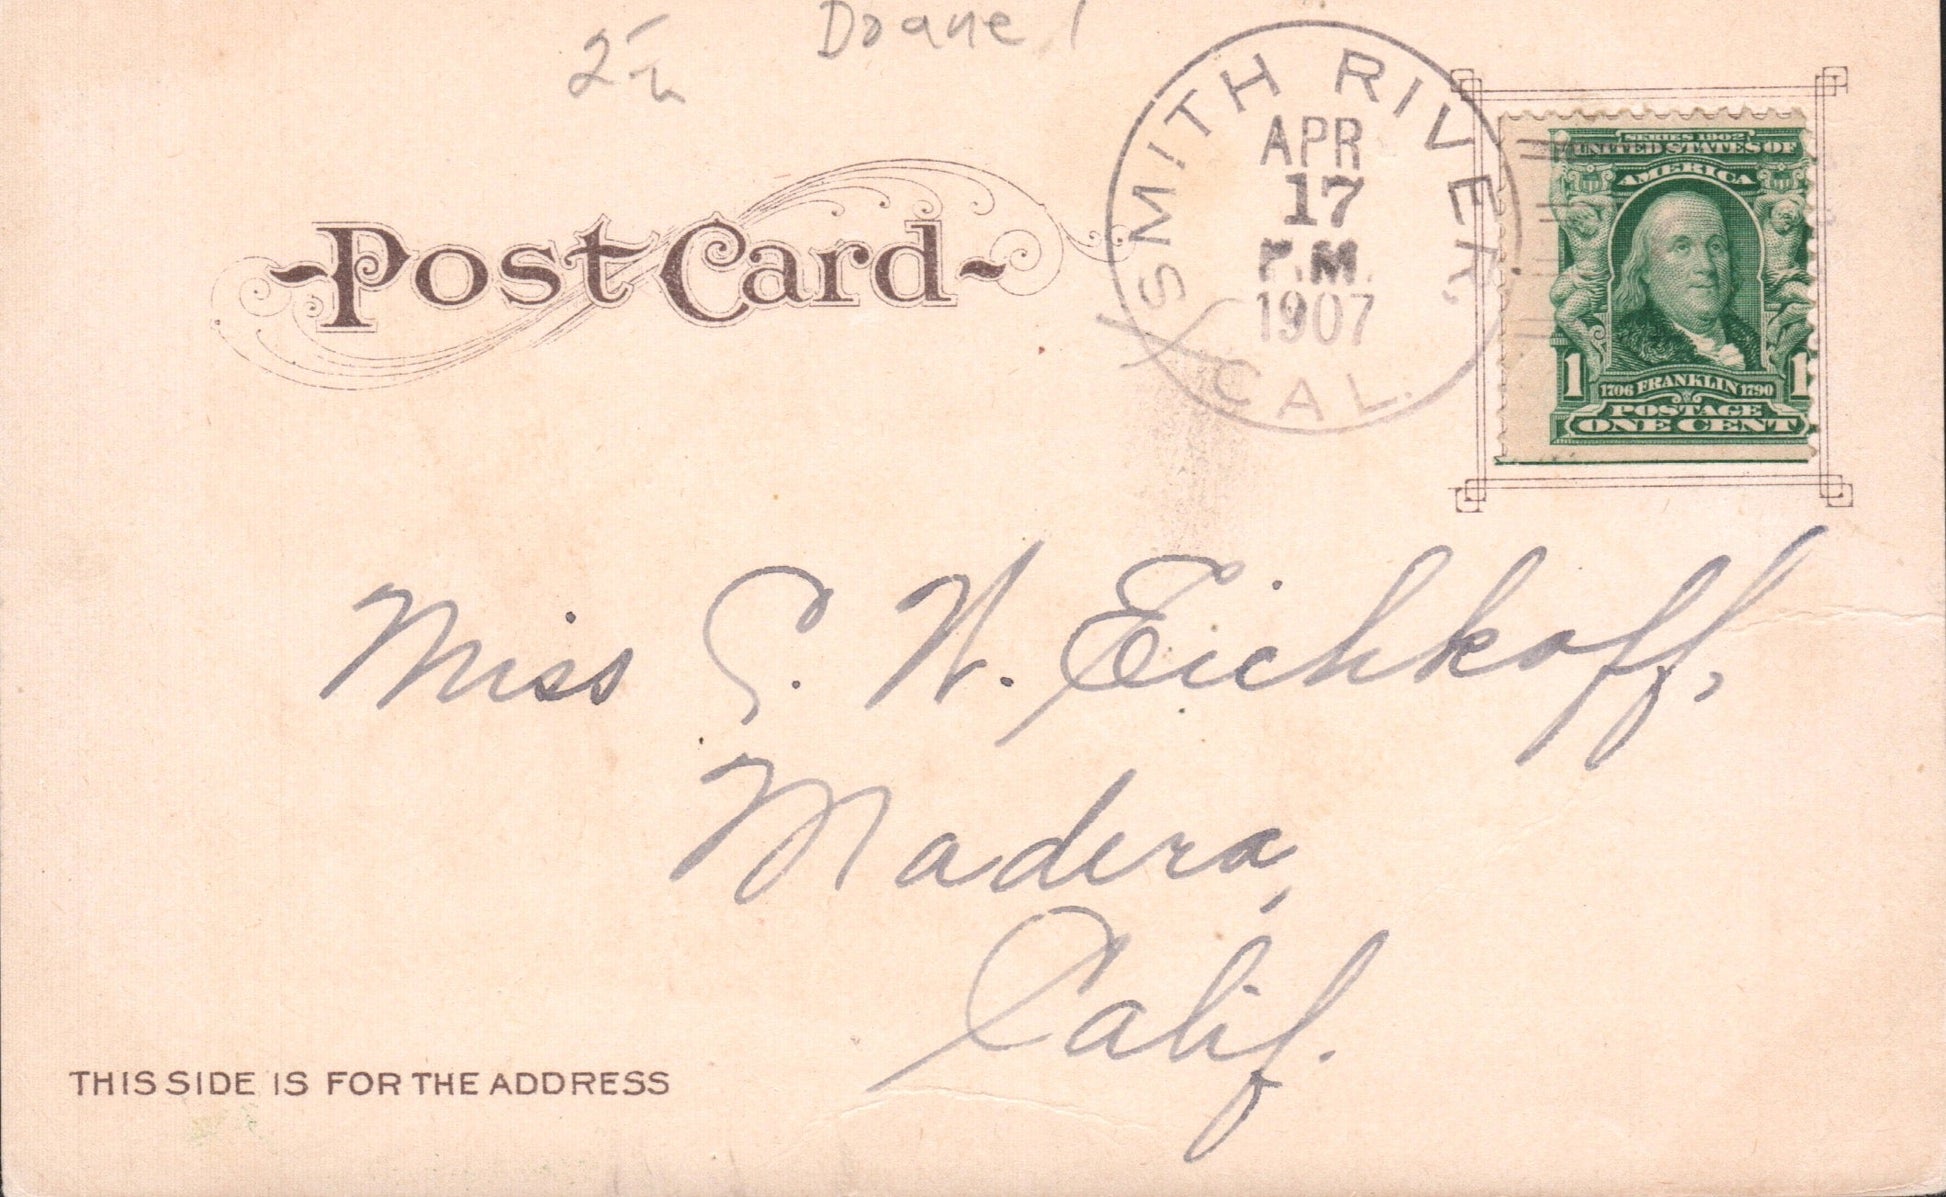 Doane 1
2
SMITH RIVER,
APR
17
P.M.
1907
CAL.
Post Card
SERIES 1902
UNITED STATES OF
AMERICA
1 1
1706 FRANKLIN 1790
POSTAGE
ONE CENT
Miss C. W. Eichkoff,
Madera,
Calif.
THIS SIDE IS FOR THE ADDRESS